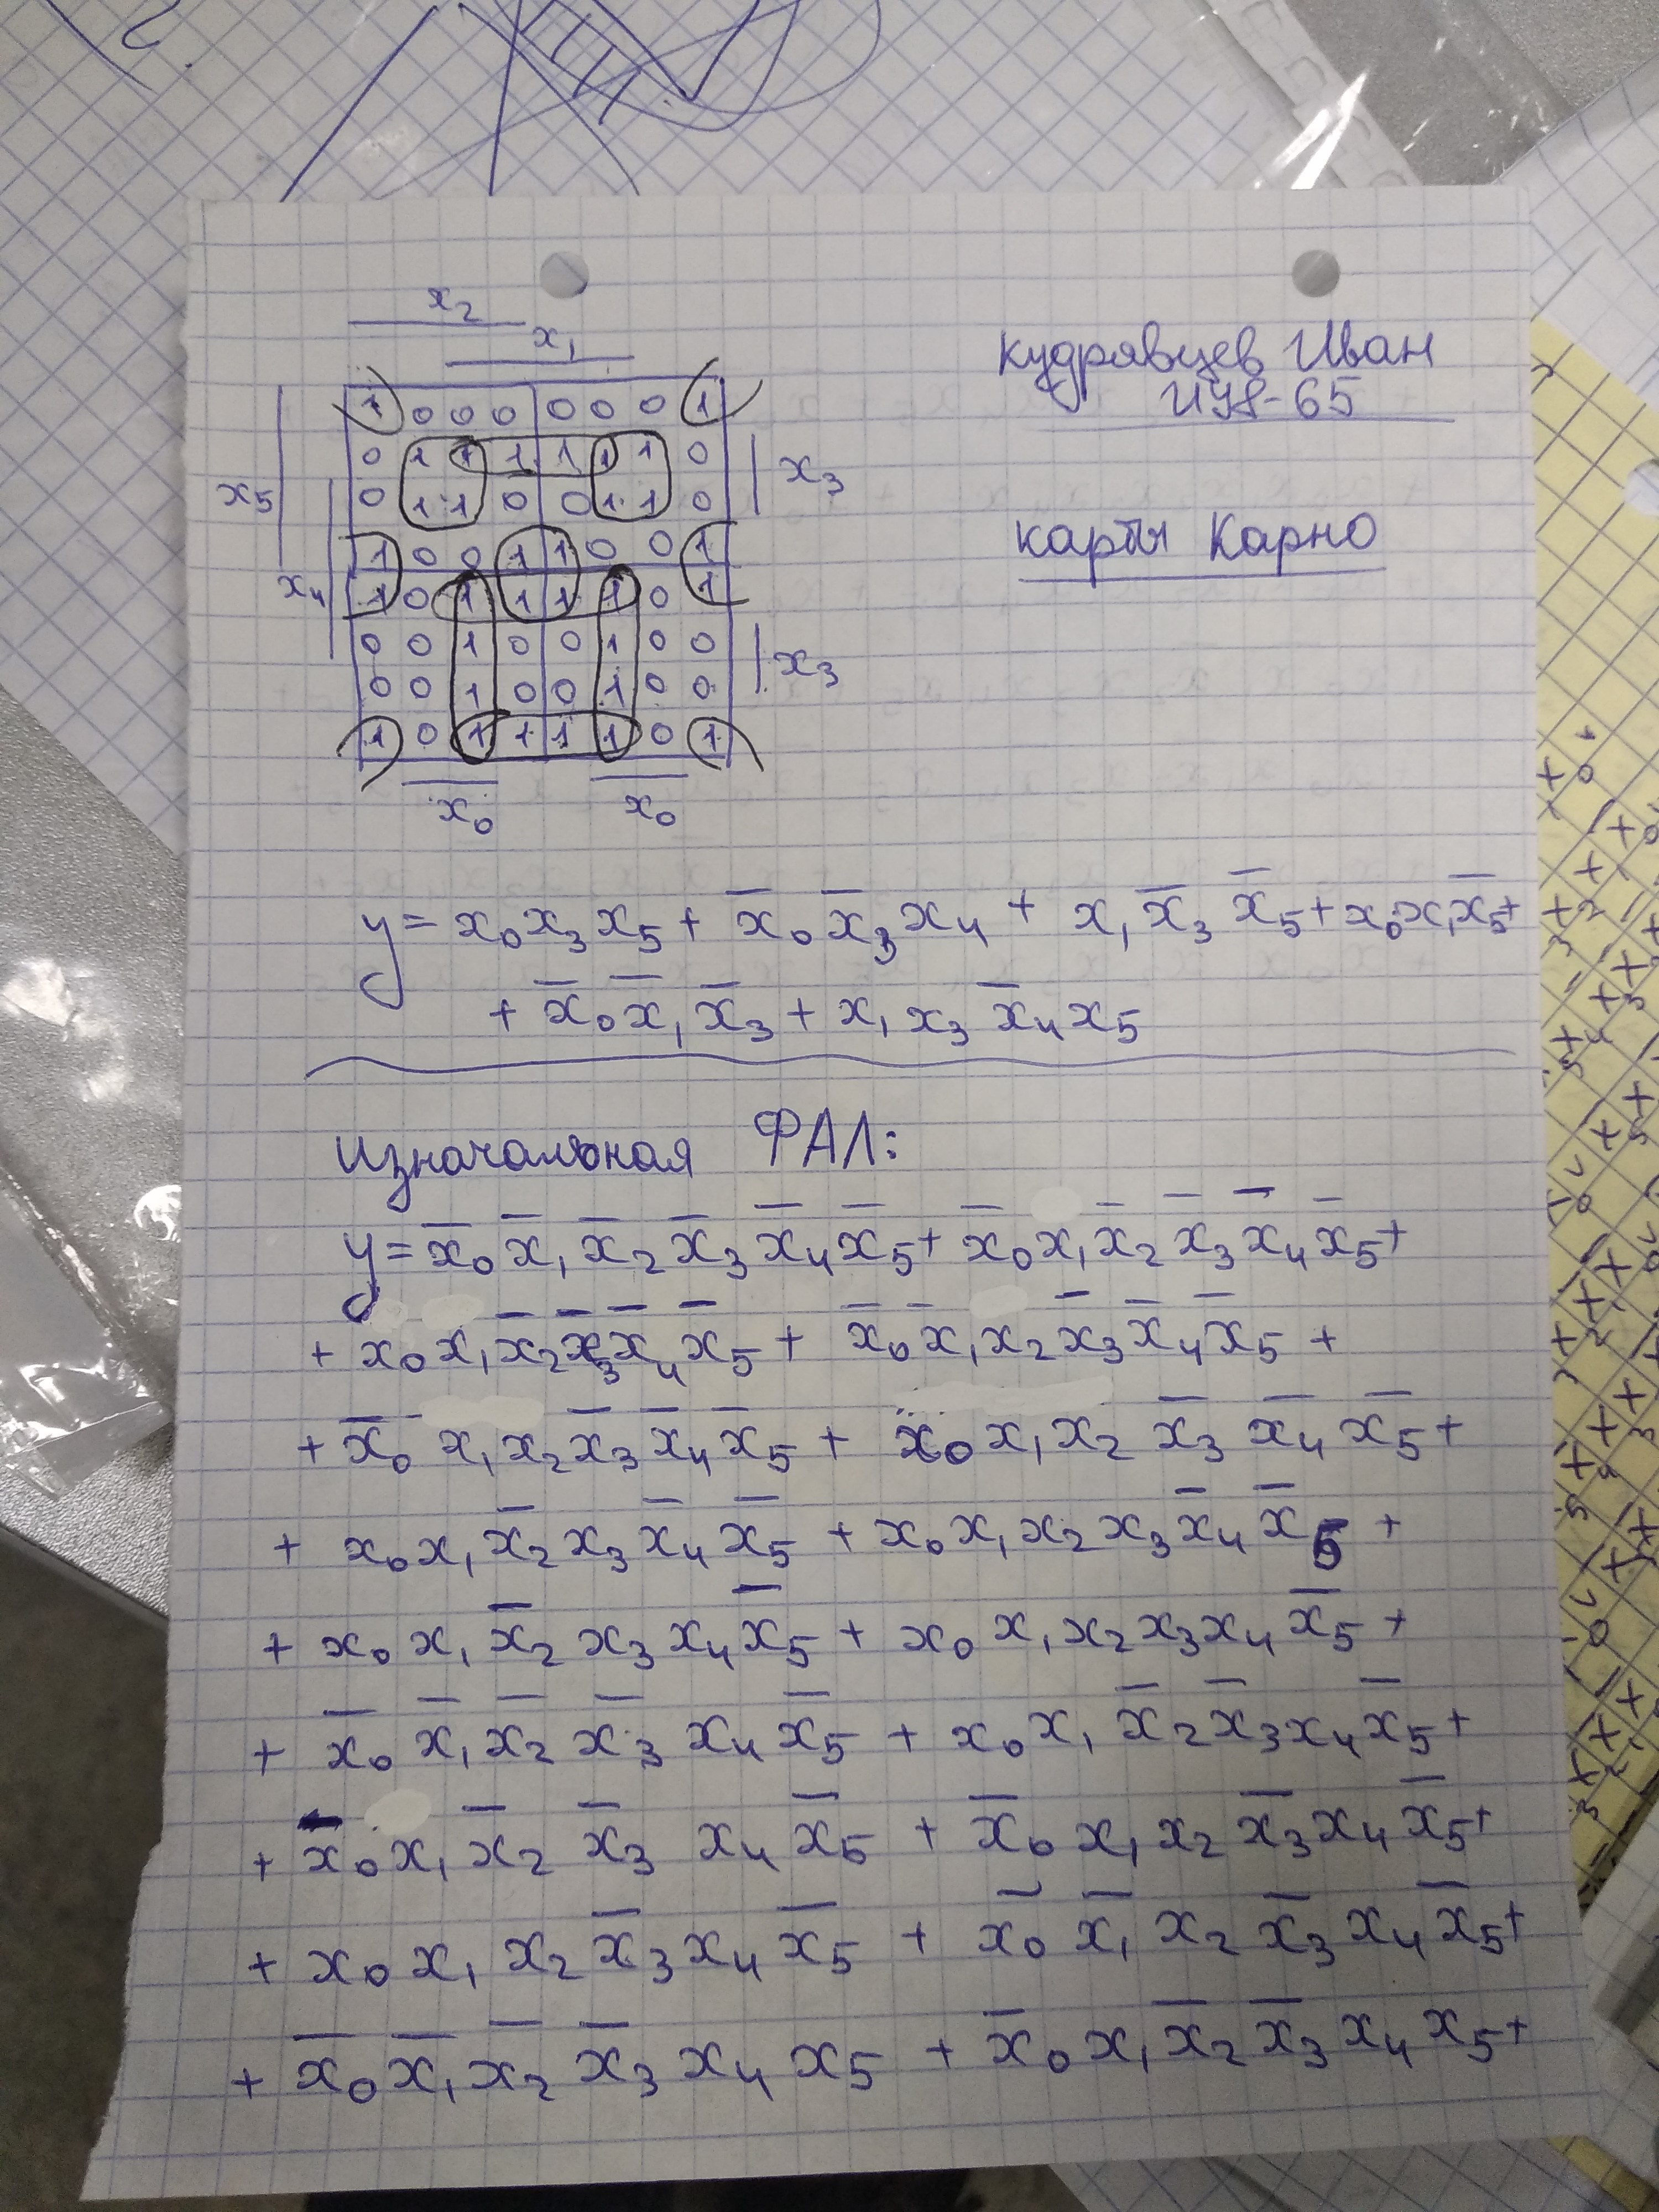 x₂
x₁
кудрявцев Иван
ИУ8-65
1 0 0 0 0 0 0 1
0 1 1 1 1 1 1 0
x₃
x₅
0 1 1 0 0 1 1 0
карты Карно
1 0 0 1 1 0 0 1
x₄
1 0 1 1 1 1 0 1
0 0 1 0 0 1 0 0
x₃
0 0 1 0 0 1 0 0
1 0 1 1 1 1 0 1
x₀ x₀
y = x₀x₃x₅ + x̅₀x̅₃x₄ + x₁x̅₃x̅₅ + x₀x₁x̅₅ +
+ x̅₀x̅₁x̅₃ + x₁x₃x̅₄x₅
изначальная ФАЛ:
y = x̅₀x̅₁x̅₂x̅₃x̅₄x̅₅ + x̅₀x₁x̅₂x̅₃x̅₄x̅₅ +
+ x₀x₁x̅₂x̅₃x̅₄x̅₅ + x̅₀x̅₁x₂x̅₃x̅₄x̅₅ +
+ x̅₀x₁x₂x̅₃x̅₄x̅₅ + x₀x₁x₂x̅₃x̅₄x̅₅ +
+ x₀x₁x̅₂x₃x̅₄x̅₅ + x₀x₁x₂x₃x̅₄x̅₅ +
+ x₀x₁x̅₂x₃x₄x̅₅ + x₀x₁x₂x₃x₄x̅₅ +
+ x̅₀x̅₁x̅₂x̅₃x₄x̅₅ + x₀x₁x̅₂x̅₃x₄x̅₅ +
+ x̅₀x₁x̅₂x̅₃x₄x̅₅ + x̅₀x₁x₂x̅₃x₄x̅₅ +
+ x₀x₁x₂x̅₃x₄x̅₅ + x̅₀x̅₁x₂x̅₃x₄x̅₅ +
+ x̅₀x̅₁x̅₂x̅₃x₄x₅ + x̅₀x₁x̅₂x̅₃x₄x₅ +